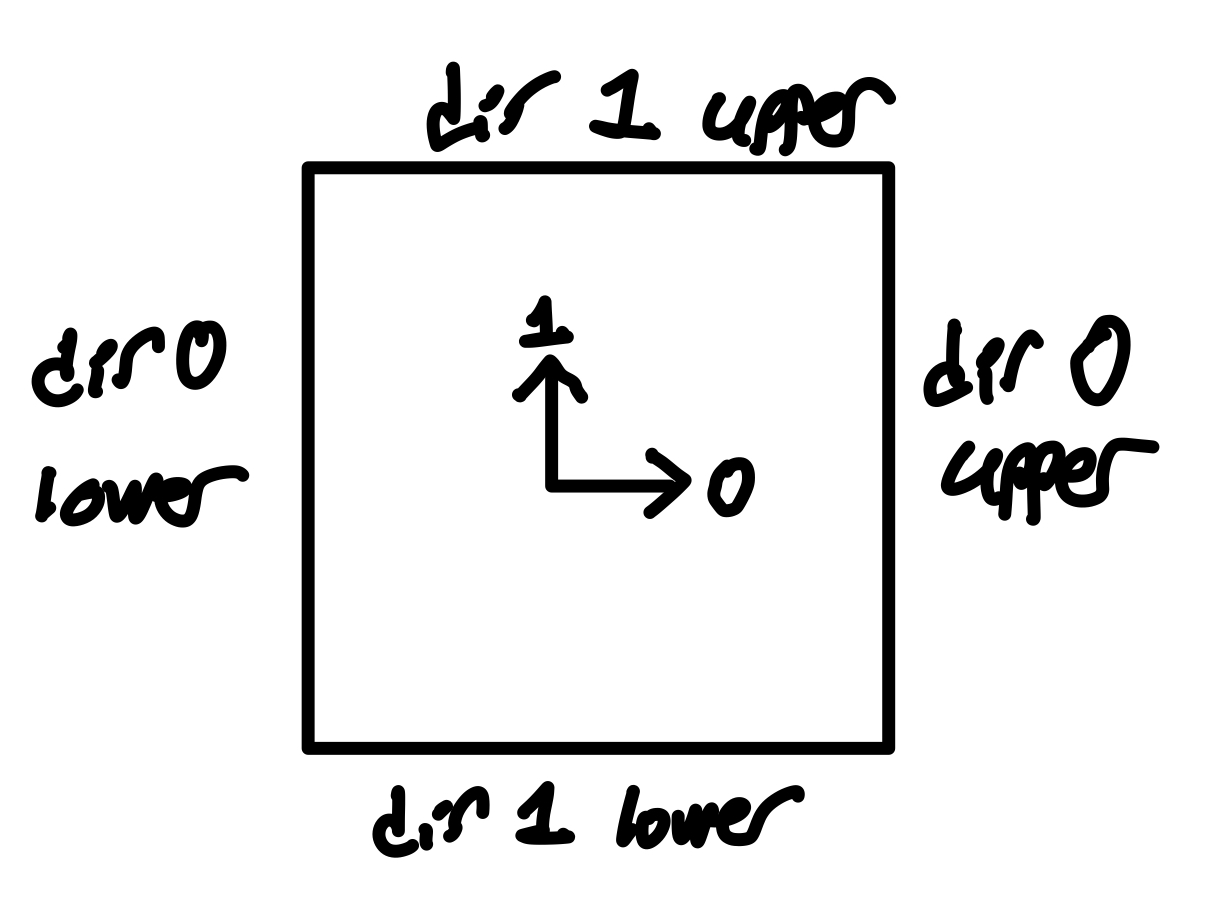 dir 1 upper
1
dir 0
lower
0
dir 0
upper
dir 1 lower